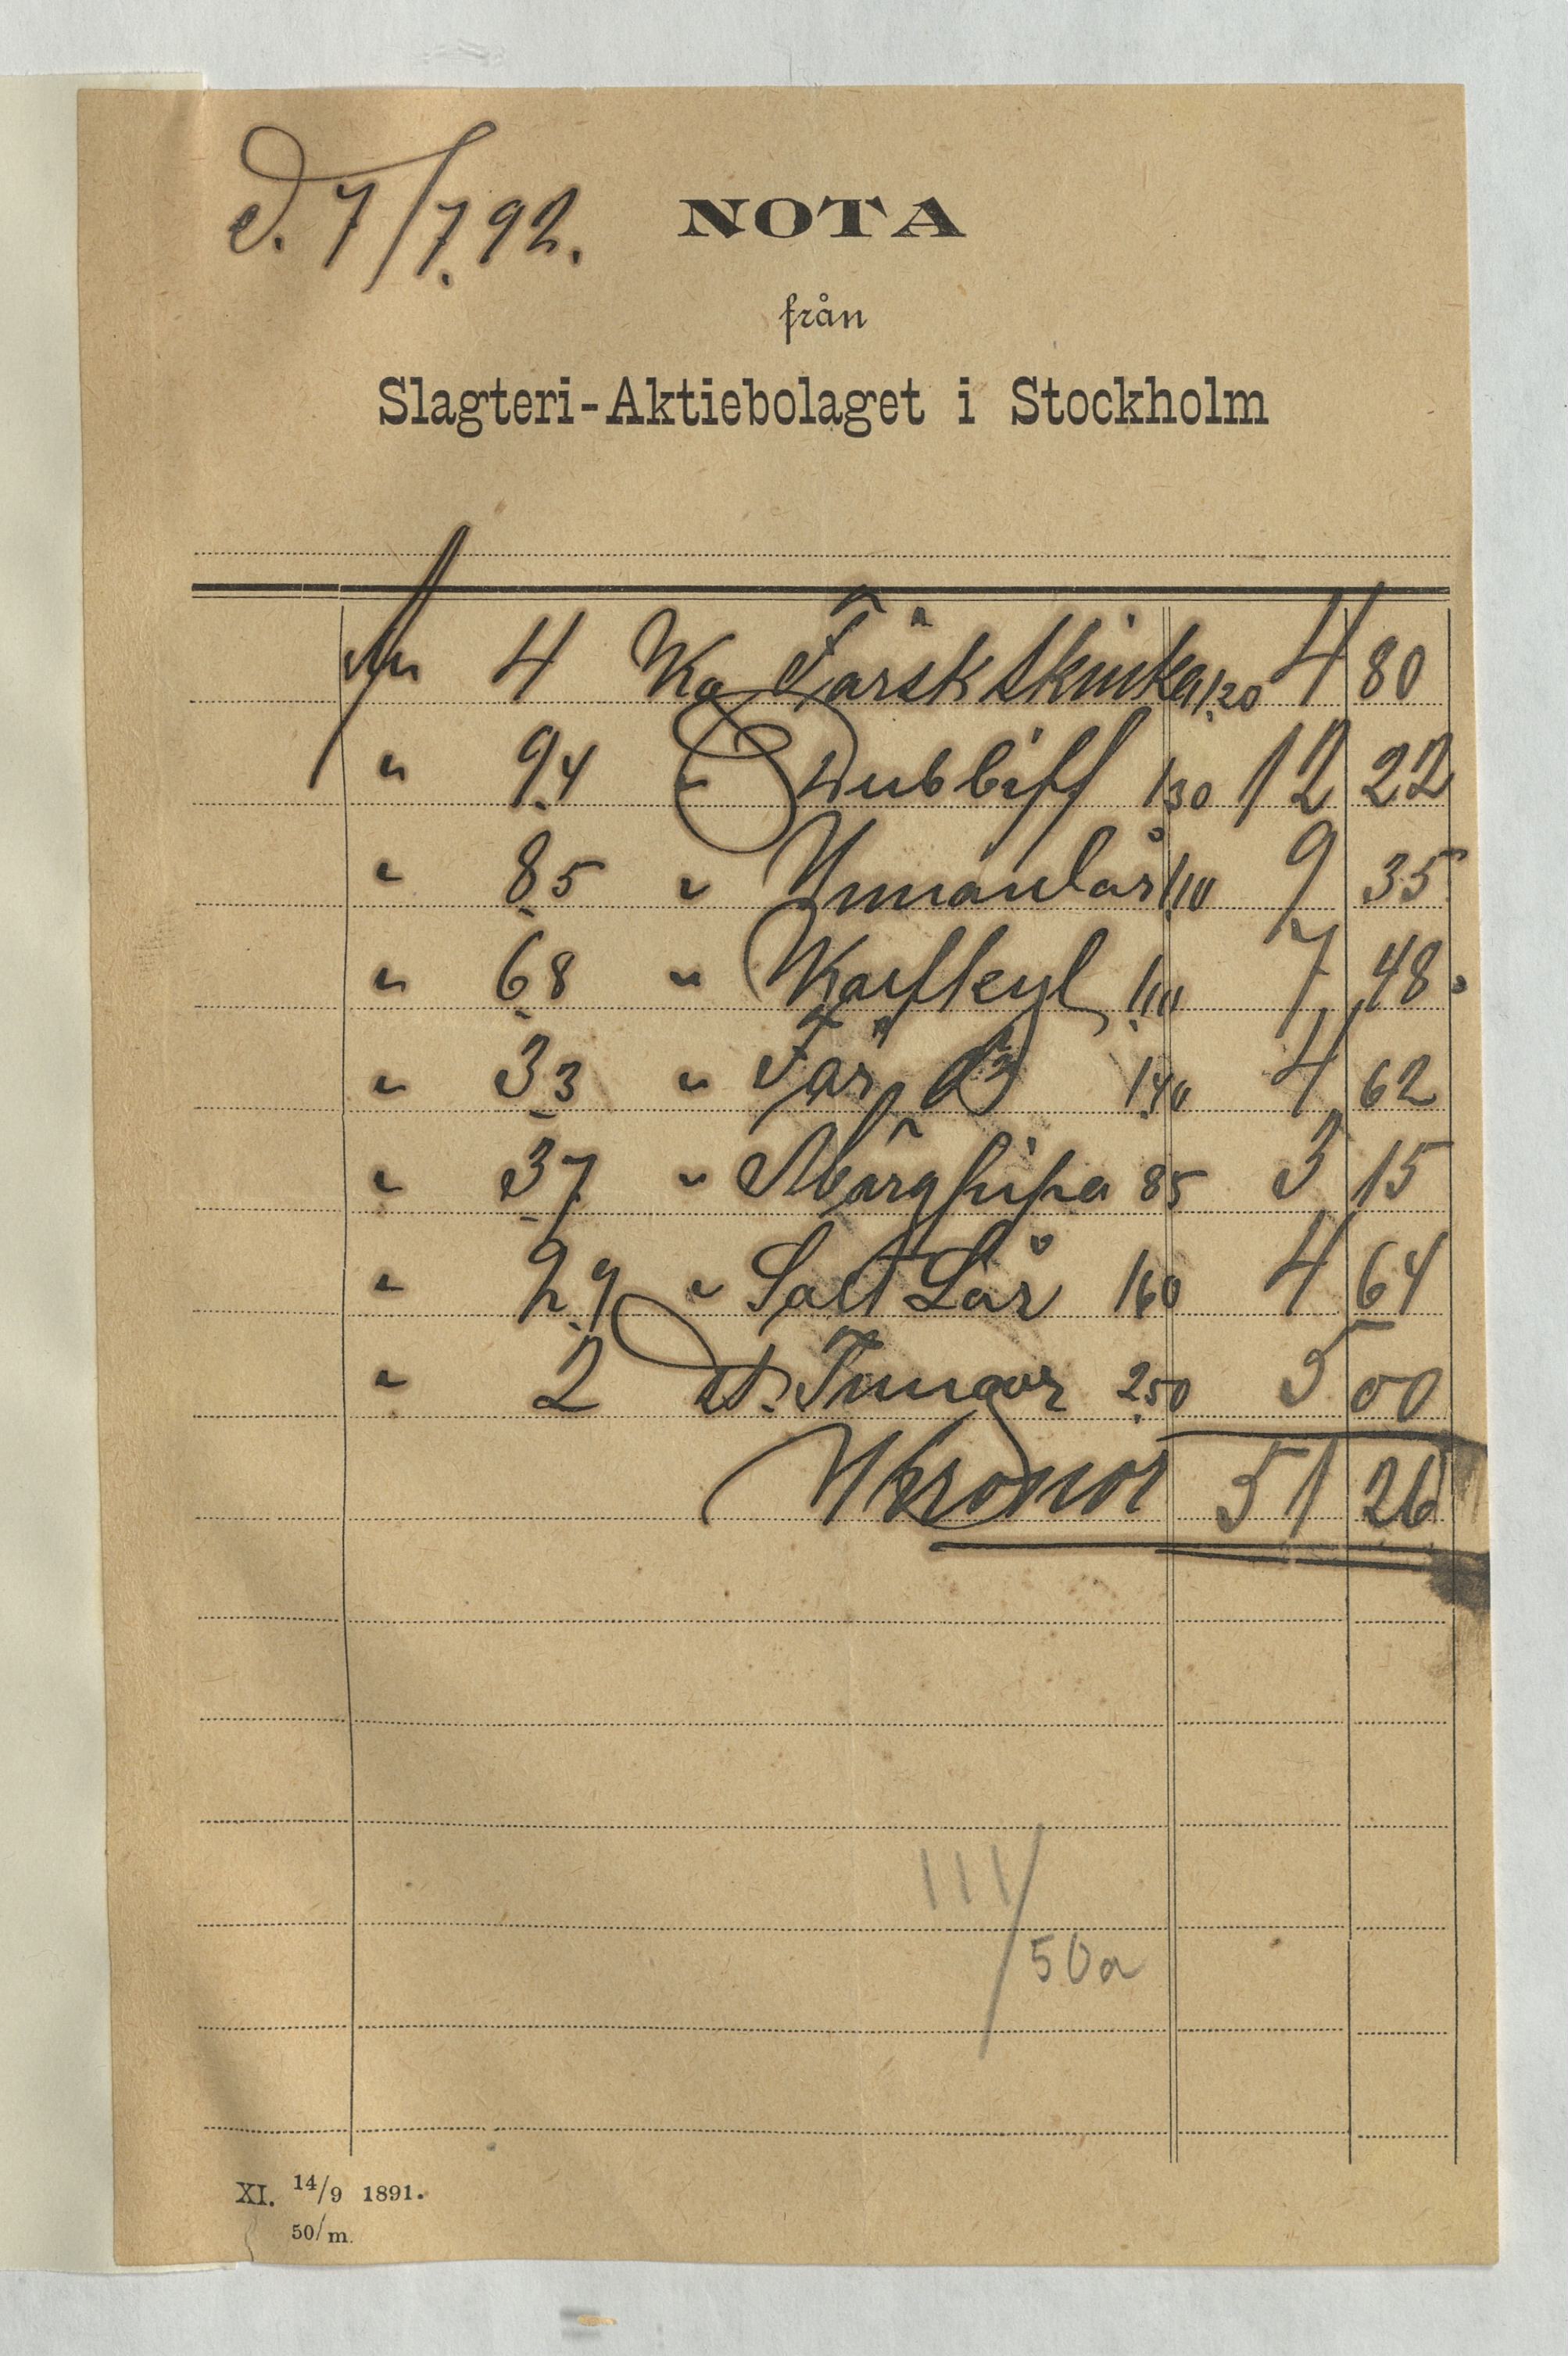 d. 7/7.92.
NOTA
från
Slagteri-Aktiebolaget i Stockholm
4 Kg Färsk Skinka 1.20 4 80
" 9.4 " Dubbiff 1.30 12 22
" 8.5 " Innanlår 1.10 9 35
" 6.8 " 1.10 7 48
" 3.3 " Får 1.40 4 62
" 3.7 " Märgpipa 85 3 15
" 2.9 " Salt Lår 1.60 4 64
" 2 st. Tungor 2.50 5 00
Kronor 51 26
111/50a
XI. 14/9 1891.
50/m.